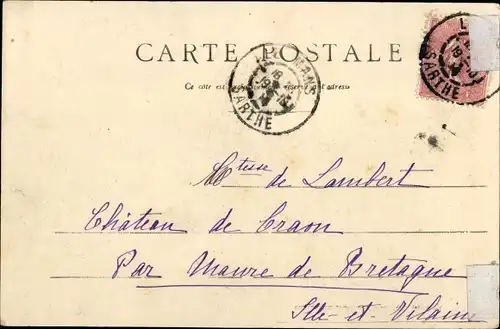 CARTE POSTALE
LE MANS
SARTHE
SARTHE
Ce côté est exclusivement réservé à l'adresse
Mtesse de Lambert
Château de Craon
Par Maure de Bretagne
Ille-et-Vilaine